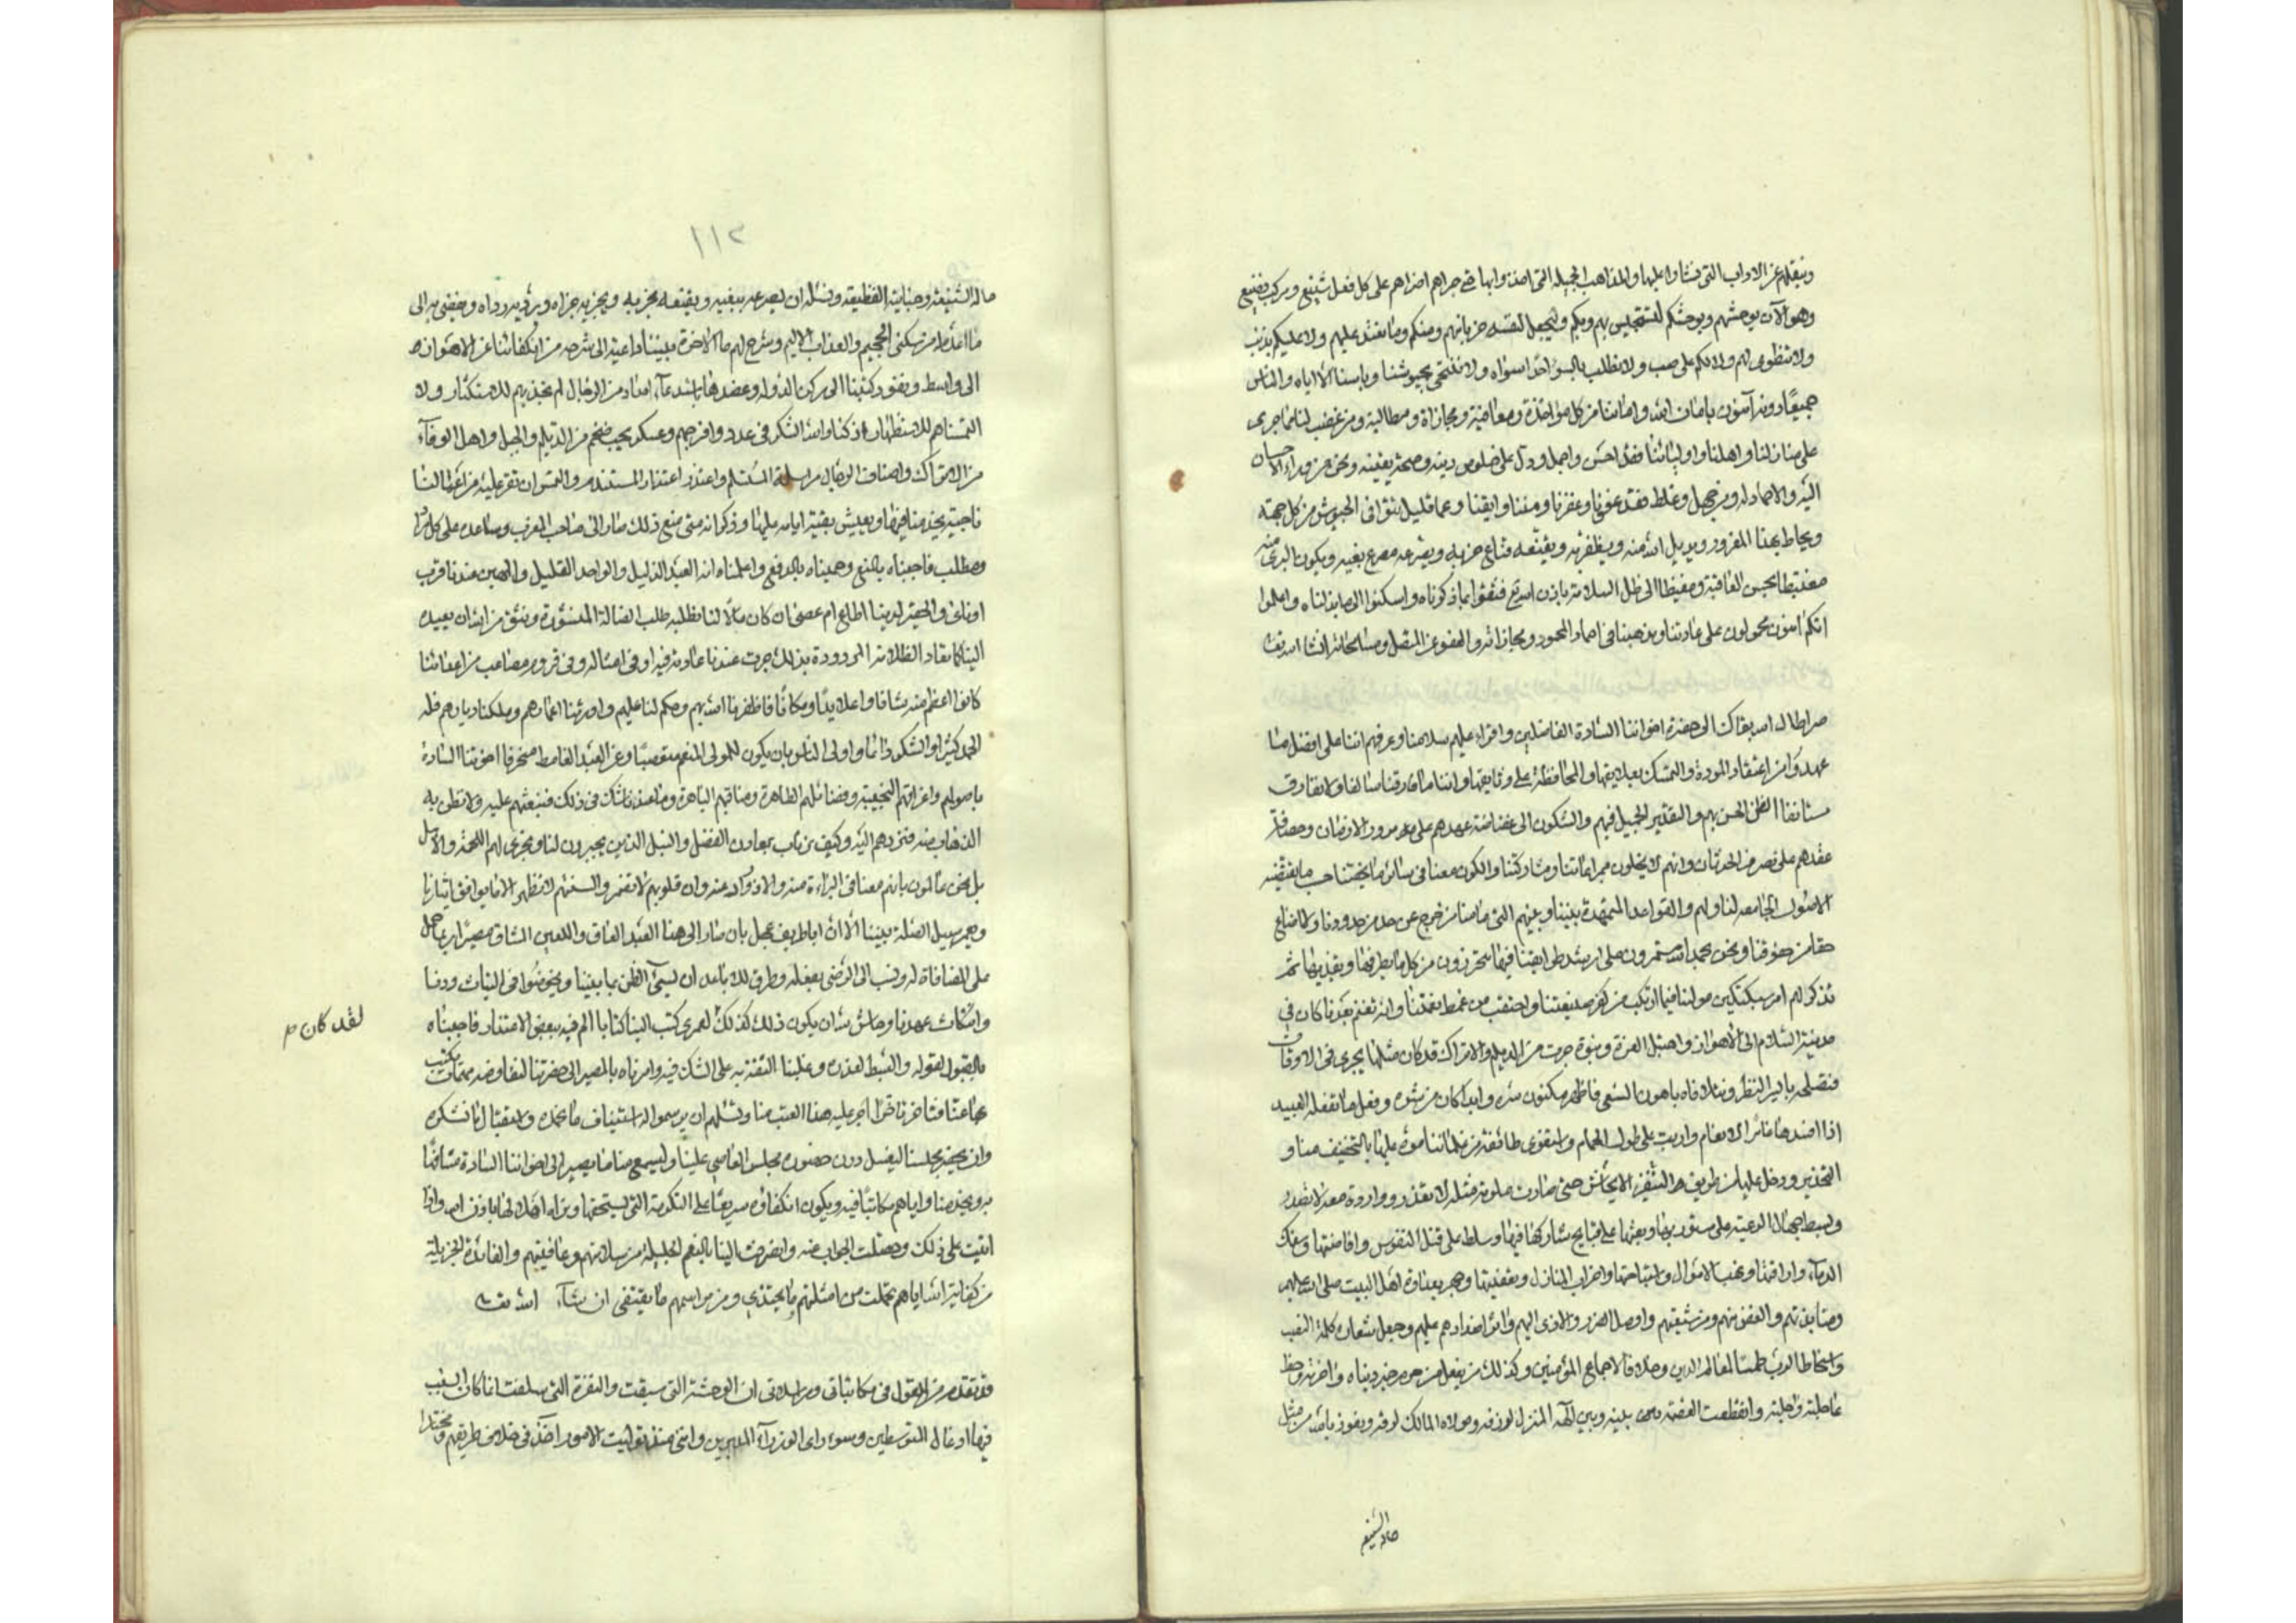 وينقلهم عن الاداب التي نشاوا عليها والمذاهب الجميله التي اخذوا بها حتى جراهم اضراهم على كل فعل شنيع ومركب فضيع
وهو الآن يوحشهم ويوحشكم ليستجيش بهم وبكم وليجعل لنفسه حزبا منهم ومنكم وما نعتد عليهم ولا عليكم بذنب
ولا ننطوى لهم ولا لكم على ولا نطلب بالسوء احدا سواه ولا ننتحى بجيوشنا وباسنا الا اياه والناس
جميعًا دونه آمنون بامان الله واماننا من كل مواخذة ومعاقبة ومجازاة ومطالبة ومن غضب لنا مما جرى
على منازلنا واهلنا واوليائنا فقد احسن واجمل ودل على خلوص دينه وصحة يقينه ونحن من وراء الاحسان
اليه والاحماد له ومن جهل وغلط فقد عفونا وغفرنا ومننا وابقينا وعما قليل تتوافى الجيوش من كل جهة
ويحاط بهذا المغرور ويديل الله منه ويظفر به ويقنعه قناع خزيه ويصرعه مصرع بغيه ويكون البرى منه
مغتبطا بحسن العاقبة ومفيضا الى ظل السلامة باذن الله تع فثقوا بما ذكرناه واسكنوا الى ما بذلناه واعلموا
انكم آمنون محمولون على عادتنا ومذهبنا فى احماد المحمود ومجازاته والعفو عن المتنصل ومسامحاته انشا الله تعا
صر اطال الله بقاك الى حضرة اخواننا السادة الفاضلين واقراء عليهم سلامنا وعرفهم اننا على افضل ما
عهدوا من اعتقاد المودة والتمسك بعلايقها والمحافظة على وثايقها واننا ما فارقنا سالفا ولا نفارق
مستانفا الظن الحسن بهم والتقدير الجميل فيهم والسكون الى غضاضة عهدهم على مرور الازمان وحصافة
عقدهم على تصرف الحدثان وانهم لا يخلون من مراعاتنا ومشاركتنا والكون معنا فى سائر ما يخصنا حسب ما يقتضيه
الاصول الجامعه لنا ولهم والقواعد المتمهدة بيننا وبينهم التى ما منا من خرج عن حد من حدودها ولا اضاع
حقا من حقوقها ونحن بحمد الله مستمرون على ارشد طرايقنا فيها متحرزون من كل ما يطرفها ويقذيها ثم
تذكر لهم امر سبكتكين مولانا فيما ارتكب من كفر صنيعتنا واحتقب من غمط نعمتنا وانه تغنم بعدنا كان فى
مدينة السلام الى الاهواز واهتبل الغرة ونبوة جرت من الديلم والاتراك قد كان مثلها يجرى فى الاوقات
فنصلحه بايسر النظر ونتلافاه باهون السعى فاظهر مكنون سره وابدا كان من شره وفعل ما تفعله العبيد
اذا افسدها تاثر الانعام واربت على طول الجمام واستغوى طائفة من غلماننا مموه عليها بالتخفيف منا و
التحذير ودخل عليها من طريق التنفير الايحاش حتى صارت ملومة مثله لا تعذر وواردة معه لا تصدر
وبسط جهال الرعيه على ستور وبعثها على قبايح شاركها فيها وسلط على قتل النفوس وافاضتها وسفك
الدماء واراقتها ونهب الاموال واستباحتها واخراب المنازل وتعفيتها وجهر بعداوة اهل البيت صلى الله عليهم
ومنابذتهم والغض منهم ومن شيعتهم واوصل الضرر والاذى اليهم واثر اضدادهم عليهم وجعل شعاره كلمة النصب
واسخاط الرب طمسا لمعالم الدين وخلافا لاجماع المؤمنين وكذلك من يفعل من حرم خير دنياه واخرته وحظ
عاجلته وآجلته وانقطعت العصمة بينه وبين الهه المنزل لرزقه ومولاه المالك لرقه ونعوذ بالله من مثل
حاله الشنيعه
١١٢
حاله الشنيعة وجنايته الفظيعة ونسئله ان يصرعه ببغيه ويقنعه بخزيه ويجزيه جزاه ويرديه رداه ويفضى به الى
ما اعد له من سكنى الجحيم والعذاب الاليم ونشرح لهم ما الاخرة بيننا داعية الى شرحه من انكفائنا عن الاهواز
الى واسط ونفوذ كتبنا الى ركن الدوله وعضدها باستدعاء امداد من الرجال لم نجذبهم للاستكثار ولا
التمسناهم للاستظهار اذ كنا ولله الشكر فى عدد وافر جم وعسكر لجب ضخم من الديلم والجيل واهل الوفآء
من الاتراك واصناف الرجال مراسلة المستسلم واعتذر اعتذار المستندم والتمس ان نقر عليه من اعمالنا
ناحية ينحاز منا فيها ويعيش بقية ايامه عليها وذكر انه متى منع ذلك صار الى صاحب المغرب وساعده على كل مراد
ومطلب فاجبناه بالمنع وجبهناه بالدفع واعلمناه انه العبد الذليل والواحد القليل والمهين عندنا قرب
او نأى والحقير لدينا اطاع ام عصى وان كان مالا لنا نطلبه طلب الضالة المنشورة ونثق من الله ان يعيده
الينا كما تعاد الظلامة المردودة بذلك جرت عندنا عادته فيه وفى امثاله وفى قروم مصاعب من اعدائنا
كانوا اعظم منه شانا واعلا يدًا ومكانًا فاظفرنا الله بهم وحكم لنا عليهم واورثنا اعمارهم وملكنا ديارهم فله
الحمد كثيرا والشكر دائما واولى الناس بان يكون للمولى المنعم متعصبًا وعن العبد الغامط منحرفا اخوتنا السادة
باصولهم واعراقهم النجيبة وفضائلهم الظاهرة ومناقبهم الباهرة ومعاذ الله ان نشك فى ذلك فنبعثهم عليه ولا نظن به
الذهاب منه فنردهم اليه وكيف يرتاب بمعادن الفضل والنبل الذين يجرون لنا ونجرى لهم اللحمة والاصل
بل نحن عالمون بانهم معنا فى البراءة منه والازورار عنه وان قلوبهم لا تضمر والسنتهم لا تظهر الا ما يوافق ايثارنا
ويحرس سبيل الصلة بيننا الا ان ابا طريف عجل بان صار الى هذا العبد العاق واللعين الشاق مصيرًا ربما حمل
على المضافاة له ونسب الى الرضى بفعله وطرق للاباعد ان تسئ الظن بما بيننا ويخوضوا فى النيات ودنا
وانتكاث عهدنا وحاش لله ان يكون ذلك كذلك لعمرى كتب الينا كتابا الم فيه ببعض الاعتذار فاجبناه
لقد كان صح
بالقبول لقوله والبسط لعذره وغلبنا الثقة به على الشك فيه وامرناه بالمصير الى حضرتنا لنفاوضه مهمات نكتب
وان يحضر مجلسنا ليغسل درن حضوره مجلس العاصى علينا وليسمع منا ما يصير الى اخواننا السادة مشافها
به ويحذر منا واياهم مكاتبًا فيه ويكون انكفاؤه سريعًا على التكرمة التى يستحقها ونراه اهلا لها باذن الله واذا
اتيت على ذلك وحصلت الجواب عنه وانصرفت الينا بالنعم الجليلة من سلامتهم وعافيتهم والفائدة الجزيلة
من كفاية الله اياهم تحملت من امثلتهم ما يحتذى ومن مراسمهم ما يقتفى ان شآء الله تعا
قد تقدم من القول فى مكاتباتى ومراسلاتى ان الوحشة التى سبقت والنفرة التى سلفت انما كان السبب
فيها ادغال المتوسطين وسوء راى الوزرآء المدبرين واننى منذ توليت الامور آخذ فى خلاف طريقهم